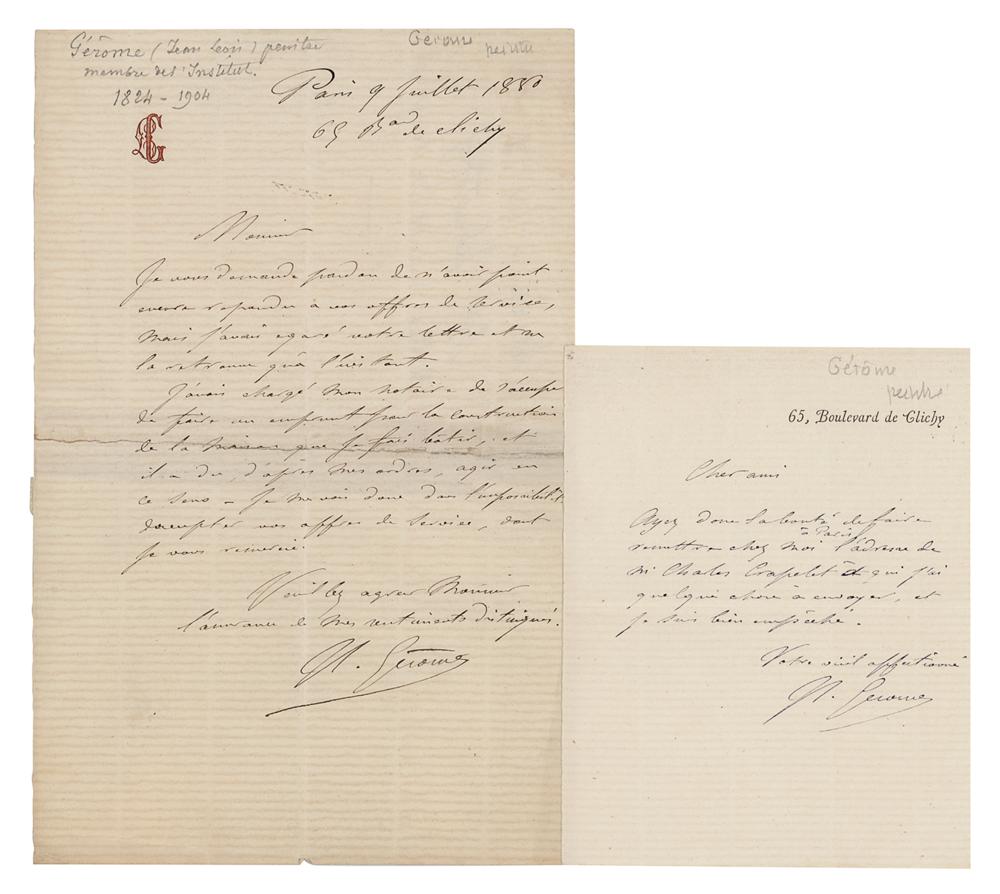 Gérôme (Jean Léon) peintre
membre de l'Institut.
1824 - 1904
Gerome
peintre
Paris 9 Juillet 1880
65 Bard de clichy
Monsieur
Je vous demande pardon de n'avoir point
encore repondu a vos offres de service,
mais j'avais egaré votre lettre et ne
la retrouve qu'à l'instant.
J'avais chargé mon notaire de s'occuper
de faire un emprunt pour la construction
de la maison que je fais bâtir, et
il a du, d'après mes ordres, agir en
ce sens - Je me vois donc dans l'impossibilité
d'accepter vos offres de service, dont
je vous remercie.
Veuillez agreer Monsieur
l'assurance de mes sentiments distingués.
JL. Gérôme
Gérôme
peintre
65, Boulevard de Clichy
Cher ami
Ayez donc la bonté de faire
remettre chez moi à Paris l'adresse de
Mr Charles Crapelet à qui j'ai
quelque chose à envoyer, et
je suis bien empêché.
Votre affectionné
JL. Gerome